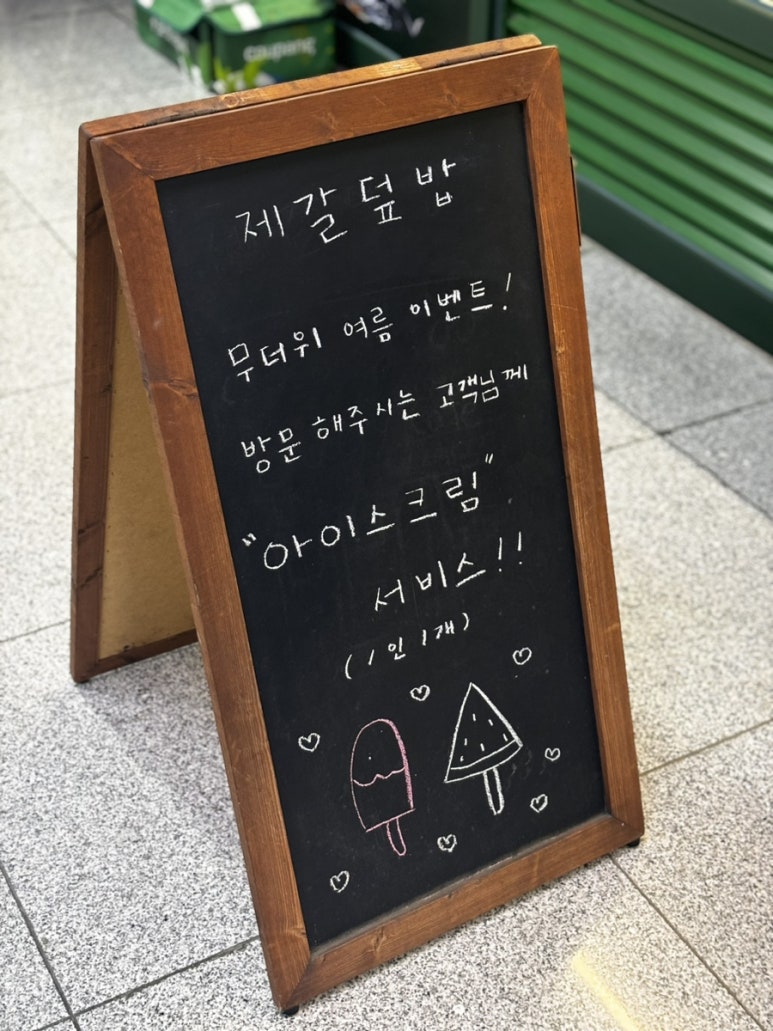 coupang
제갈덮밥
무더위 여름 이벤트!
방문 해주시는 고객님께
"아이스크림"
서비스!!
(1인 1개)